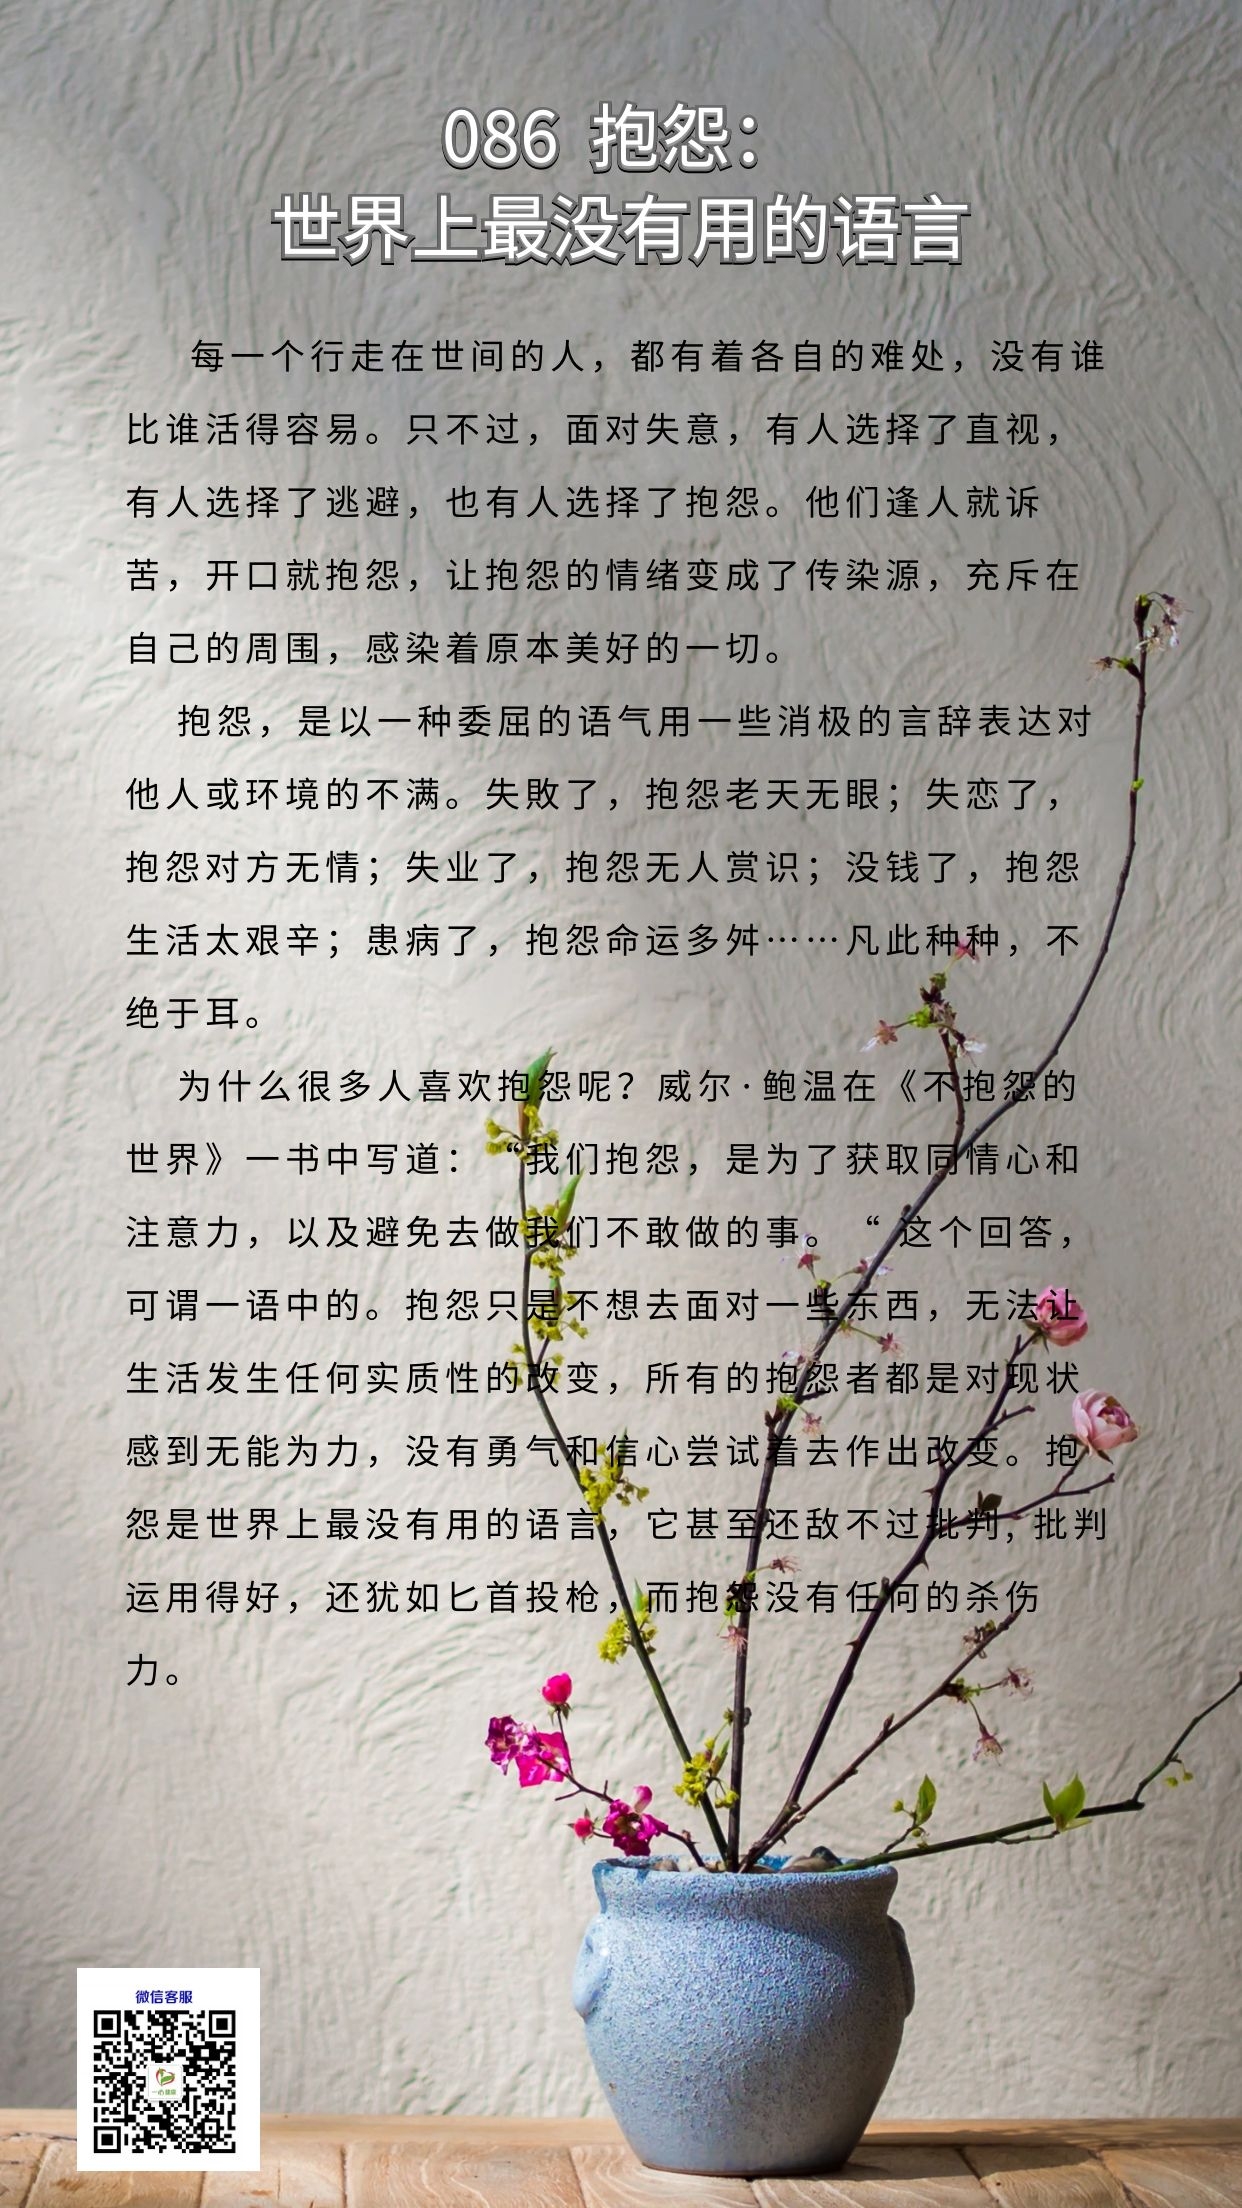 086 抱怨：
世界上最没有用的语言
每一个行走在世间的人，都有着各自的难处，没有谁
比谁活得容易。只不过，面对失意，有人选择了直视，
有人选择了逃避，也有人选择了抱怨。他们逢人就诉
苦，开口就抱怨，让抱怨的情绪变成了传染源，充斥在
自己的周围，感染着原本美好的一切。
抱怨，是以一种委屈的语气用一些消极的言辞表达对
他人或环境的不满。失敗了，抱怨老天无眼；失恋了，
抱怨对方无情；失业了，抱怨无人赏识；没钱了，抱怨
生活太艰辛；患病了，抱怨命运多舛……凡此种种，不
绝于耳。
为什么很多人喜欢抱怨呢？威尔·鲍温在《不抱怨的
世界》一书中写道：“我们抱怨，是为了获取同情心和
注意力，以及避免去做我们不敢做的事。“ 这个回答，
可谓一语中的。抱怨只是不想去面对一些东西，无法让
生活发生任何实质性的改变，所有的抱怨者都是对现状
感到无能为力，没有勇气和信心尝试着去作出改变。抱
怨是世界上最没有用的语言，它甚至还敌不过批判, 批判
运用得好，还犹如匕首投枪，而抱怨没有任何的杀伤
力。
微信客服
一心健康